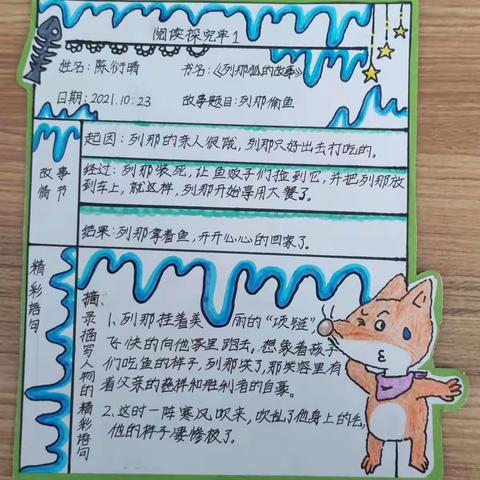 阅读探究单1
姓名:陈衍晴 书名:《列那狐的故事》
日期:2021.10.23 故事题目:列那偷鱼
故事情节
起因:列那的亲人很饿,列那只好出去打吃的。
经过:列那装死,让鱼贩子们捡到它,并把列那放
到车上,就这样,列那开始享用大餐了。
结果:列那拿着鱼,开开心心的回家了。
精彩语句
摘录描写人物的精彩语句
1、列那挂着美丽的“项链”
飞快的向他家里跑去。想象着孩子
们吃鱼的样子,列那笑了,那笑容里有
着父亲的慈祥和胜利者的自豪。
2、这时一阵寒风吹来,吹乱了他身上的毛,
他的样子凄惨极了。